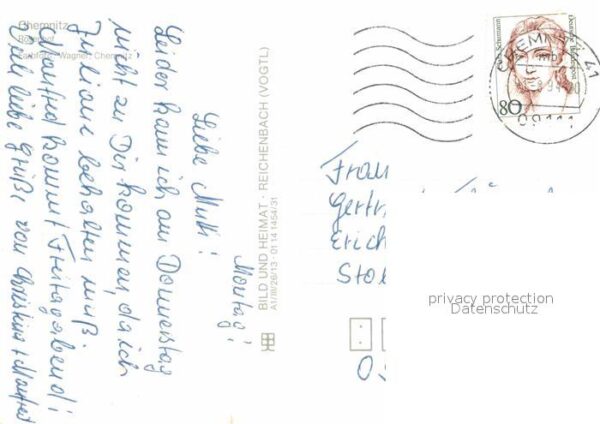 Chemnitz
Farbfoto: Wagner, Chemnitz
Montag!
Liebe Mutti!
Leider kann ich am Donnerstag
nicht zu Dir kommen, da ich
Juliane behalten muß.
Manfred kommt Freitagabend!
Viele liebe Grüße von Christina + Manfred
BILD UND HEIMAT · REICHENBACH (VOGTL)
A1/III/26/13 · 01 14 1454/31
Clara Schumann
Deutsche Bundespost
80
CHEMNITZ
41
09111
Frau
Gertr
Erich
Sto
0
privacy protection
Datenschutz